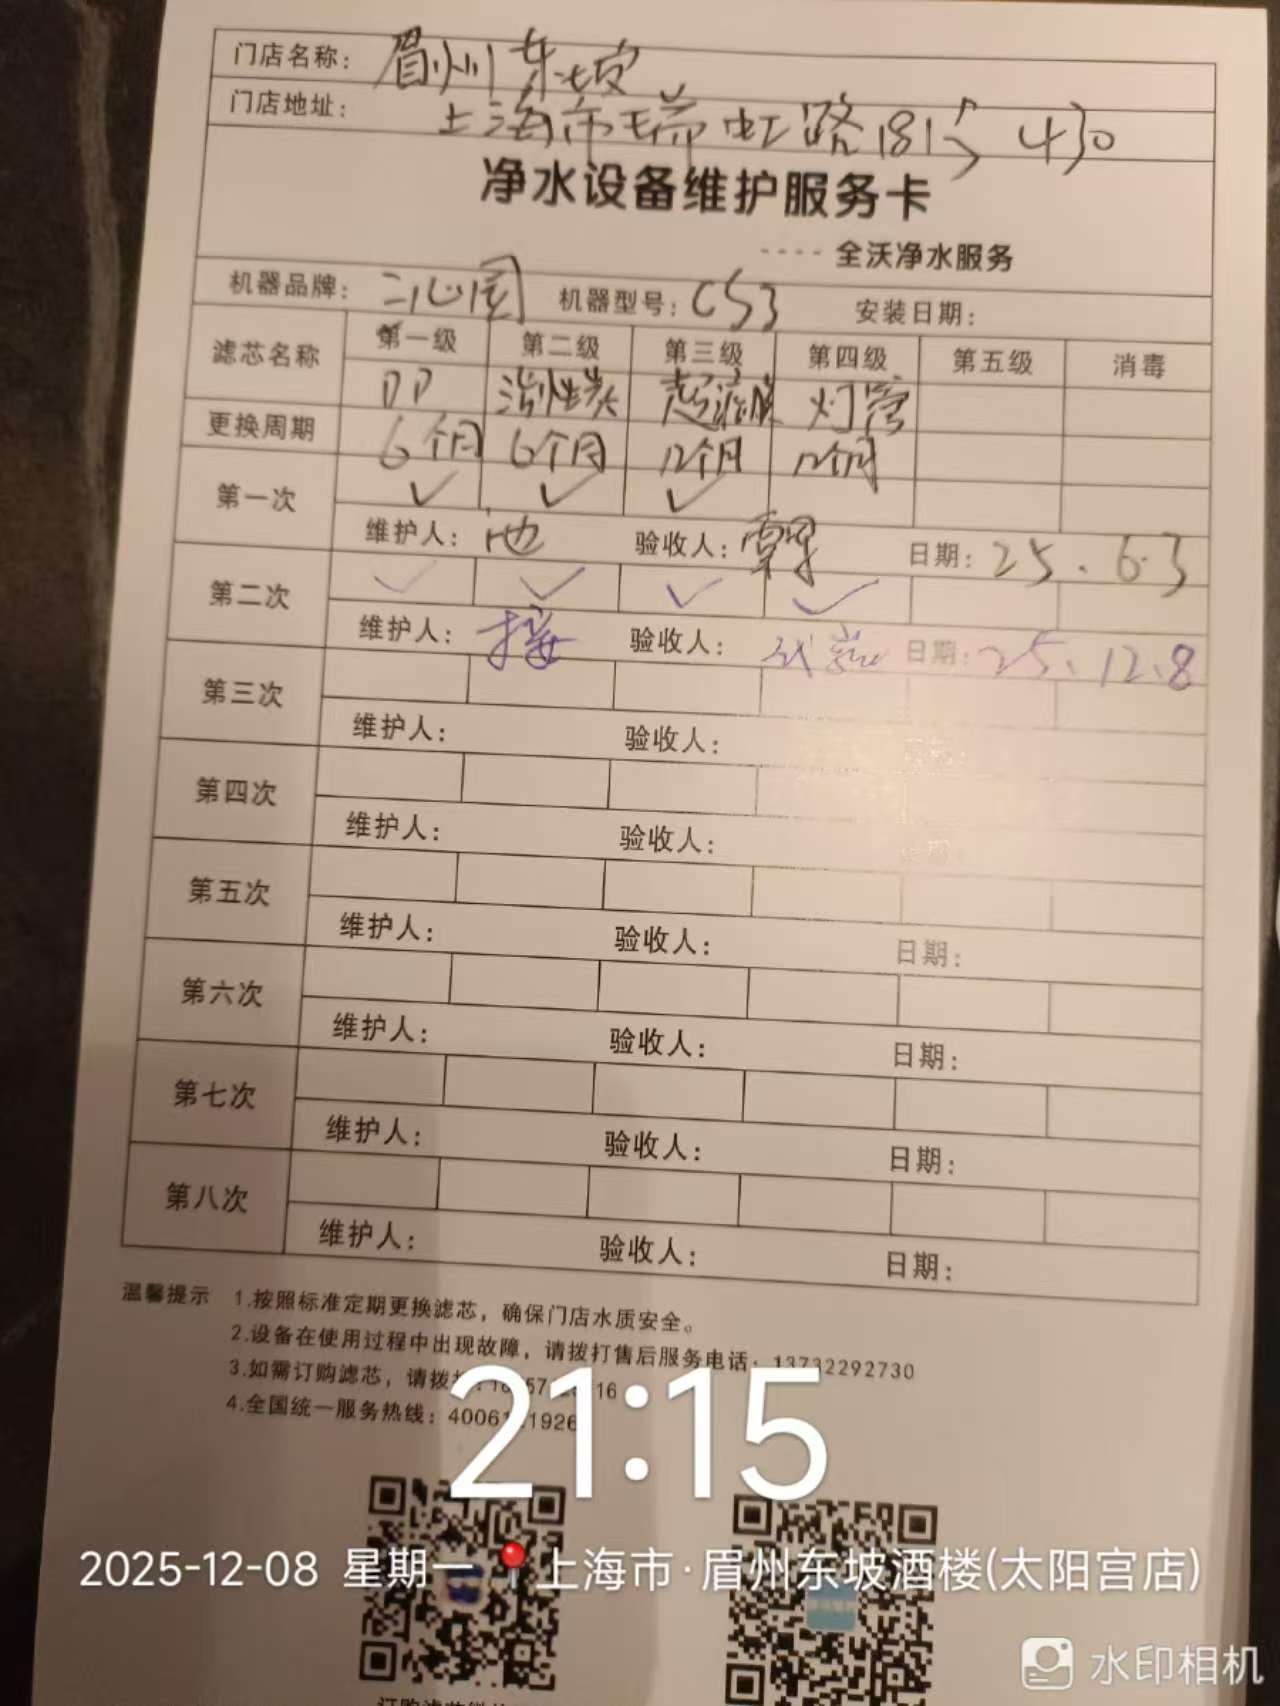 门店名称： 眉州东坡
门店地址： 上海市瑞虹路181号 430
净水设备维护服务卡
---- 全沃净水服务
机器品牌： 机器型号：CS3 安装日期：
滤芯名称 第一级 第二级 第三级 第四级 第五级 消毒
PP 活性炭 超滤膜 灯管
更换周期 6个月 6个月 12个月 12个月
第一次 ✓ ✓ ✓
维护人：池 验收人：覃 日期：25.6.3
第二次 ✓ ✓ ✓ ✓
维护人：接 验收人： 日期：25.12.8
第三次
维护人： 验收人：
第四次
维护人： 验收人： 日期：
第五次
维护人： 验收人： 日期：
第六次
维护人： 验收人： 日期：
第七次
维护人： 验收人： 日期：
第八次
维护人： 验收人： 日期：
温馨提示 1.按照标准定期更换滤芯，确保门店水质安全。
2.设备在使用过程中出现故障，请拨打售后服务电话：13732292730
3.如需订购滤芯，请拨
4.全国统一服务热线：
21:15
2025-12-08 星期一 上海市·眉州东坡酒楼(太阳宫店)
水印相机